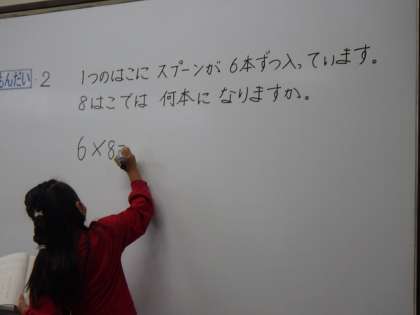 もんだい 2 1つのはこに スプーンが 6本ずつ入っています。
8はこでは 何本に なりますか。
6×8=